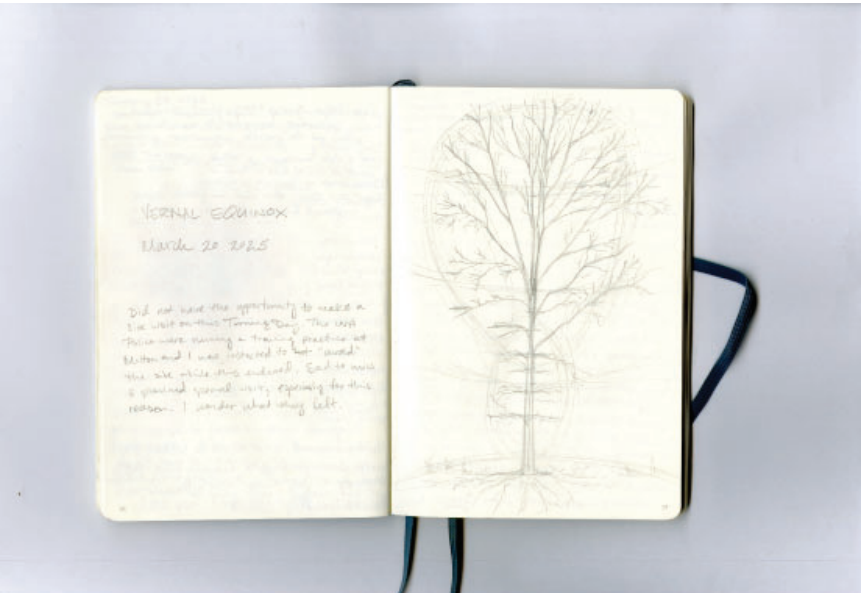 VERNAL EQUINOX
March 20 2025
Did not have the opportunity to make a
site visit on this Turning Day. The
Police were running a training practice at
Milton and I was informed to "avoid"
the site while this endured. Sad to miss
a planned visit, especially for this
reason. I wonder what they left.